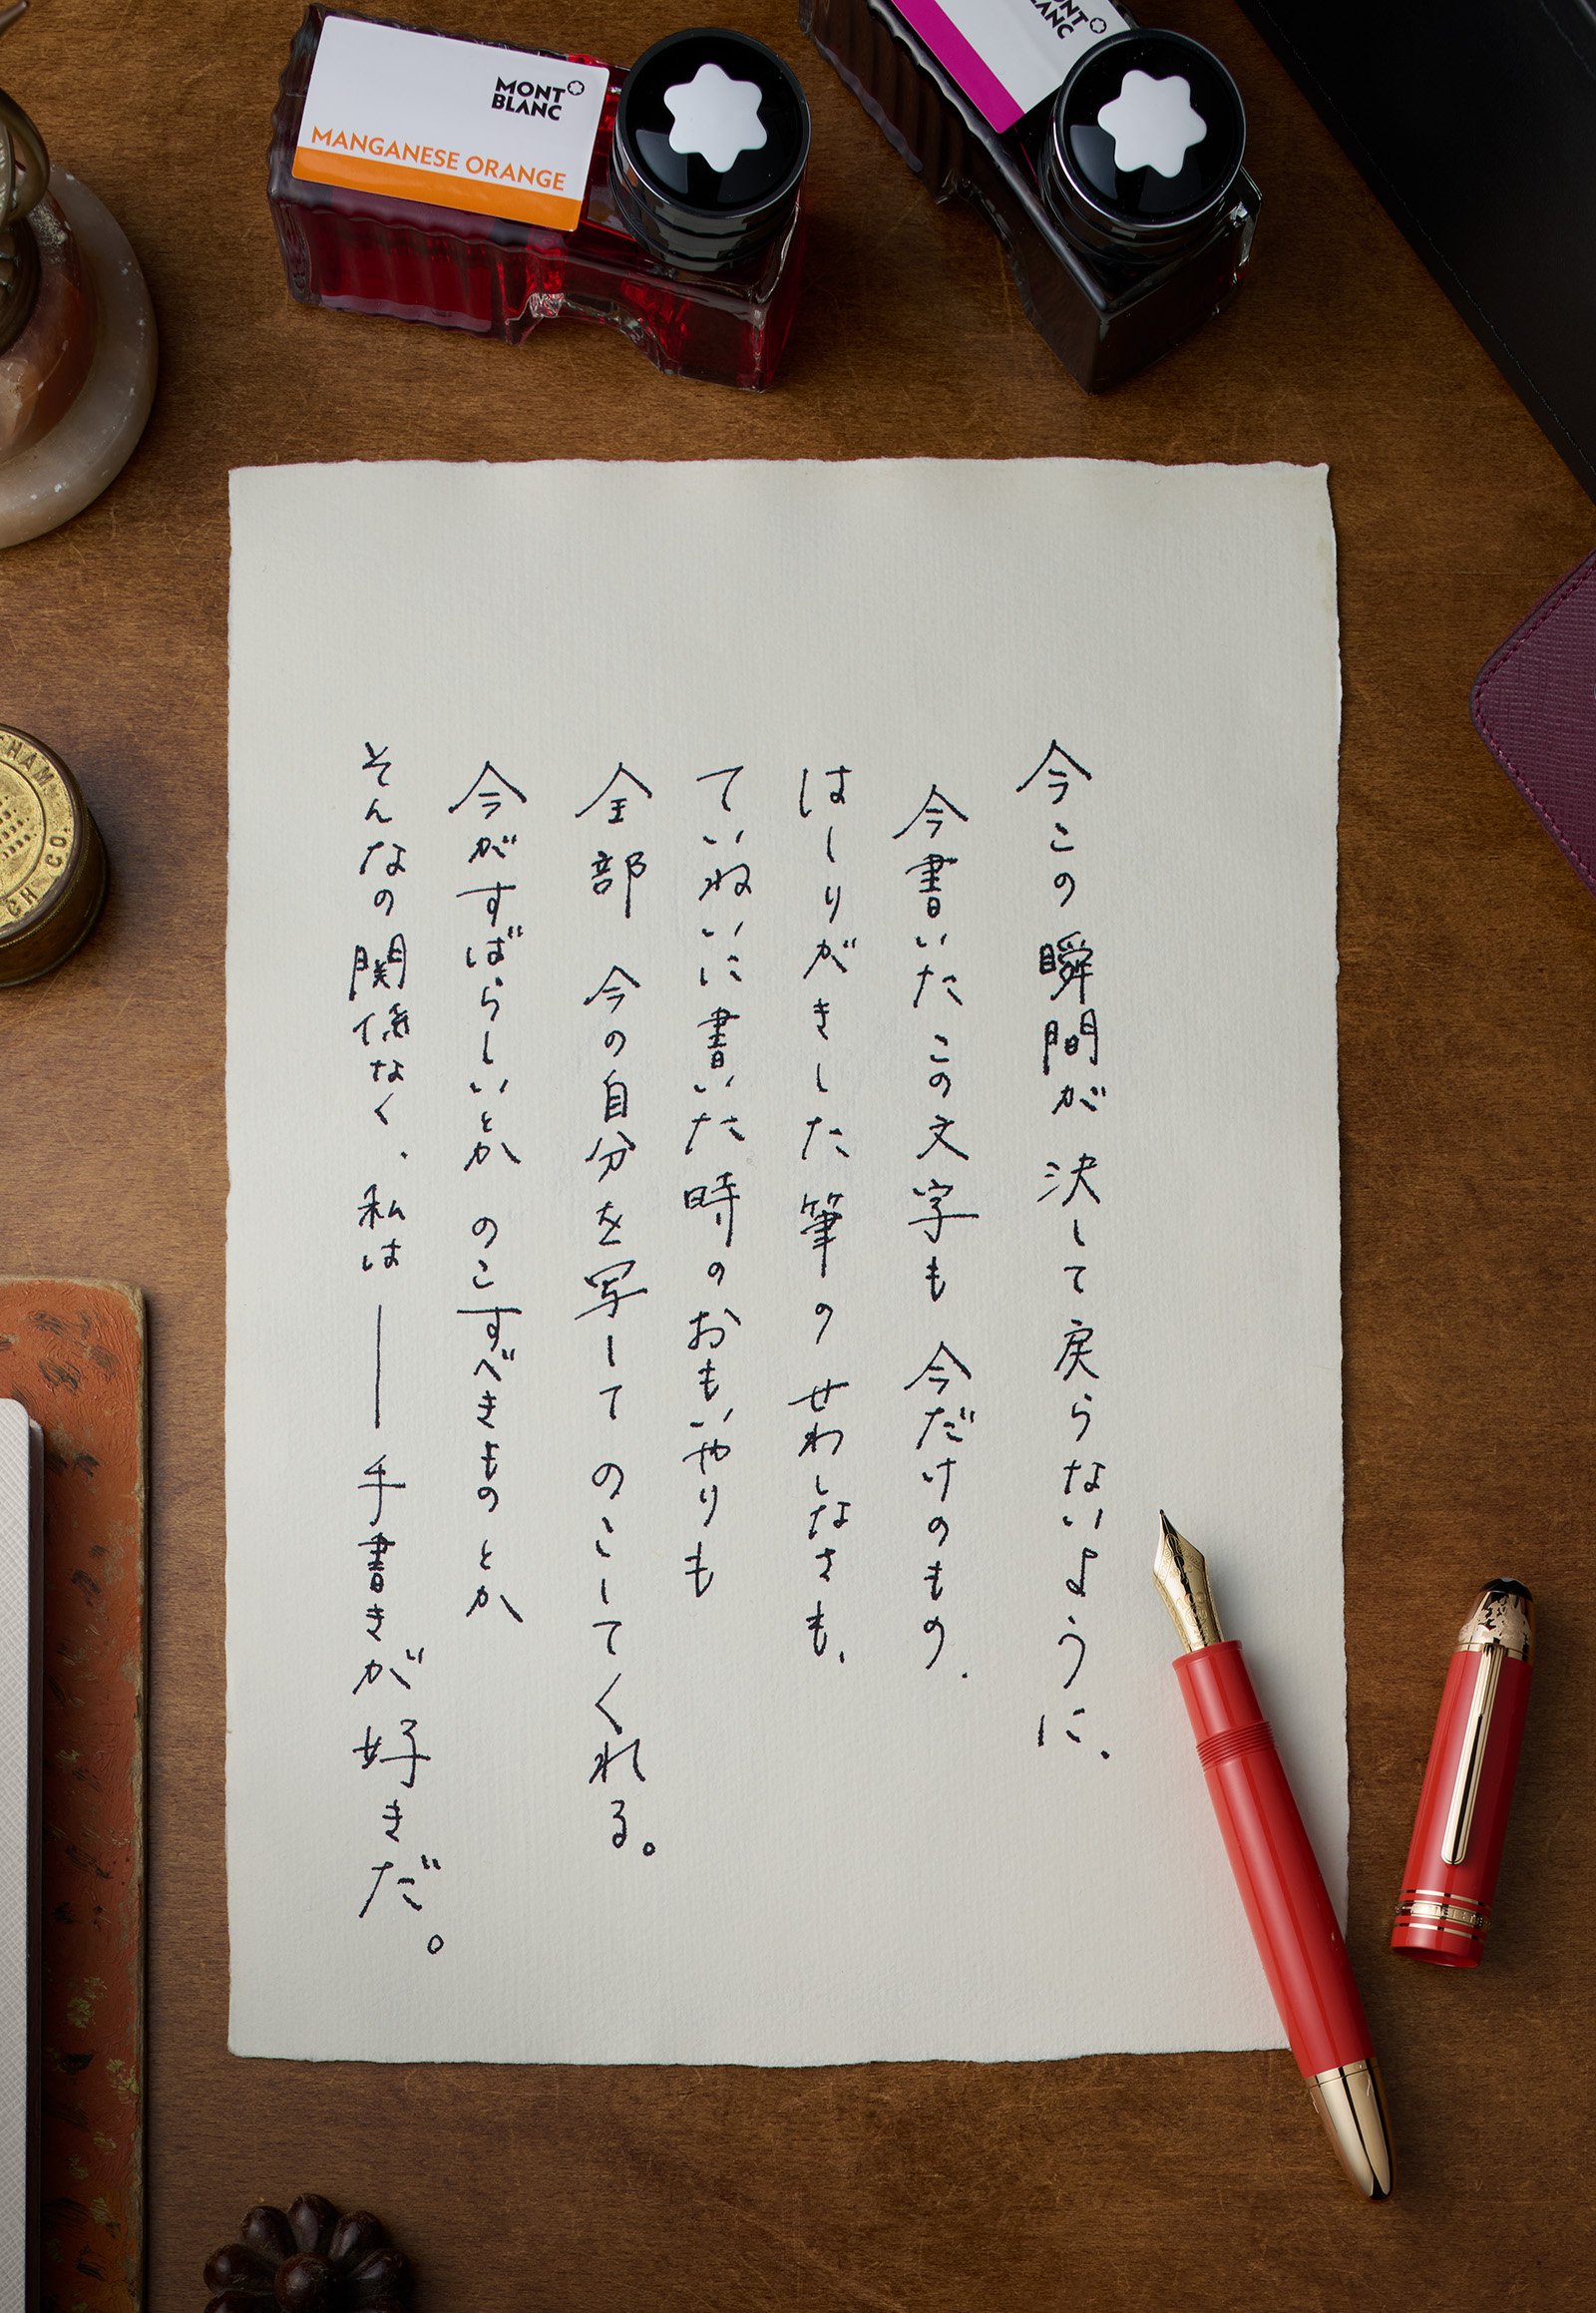 MONT
BLANC
MANGANESE ORANGE
MONT
BLANC
今この瞬間が決して戻らないように、
今書いたこの文字も今だけのもの、
はしりがきした筆のせわしなさも、
ていねいに書いた時のおもいやりも
全部 今の自分を写してのこしてくれる。
今がすばらしいとか のこすべきものとか
そんなの関係なく、私は ── 手書きが好きだ。
CHAM
CH CO.